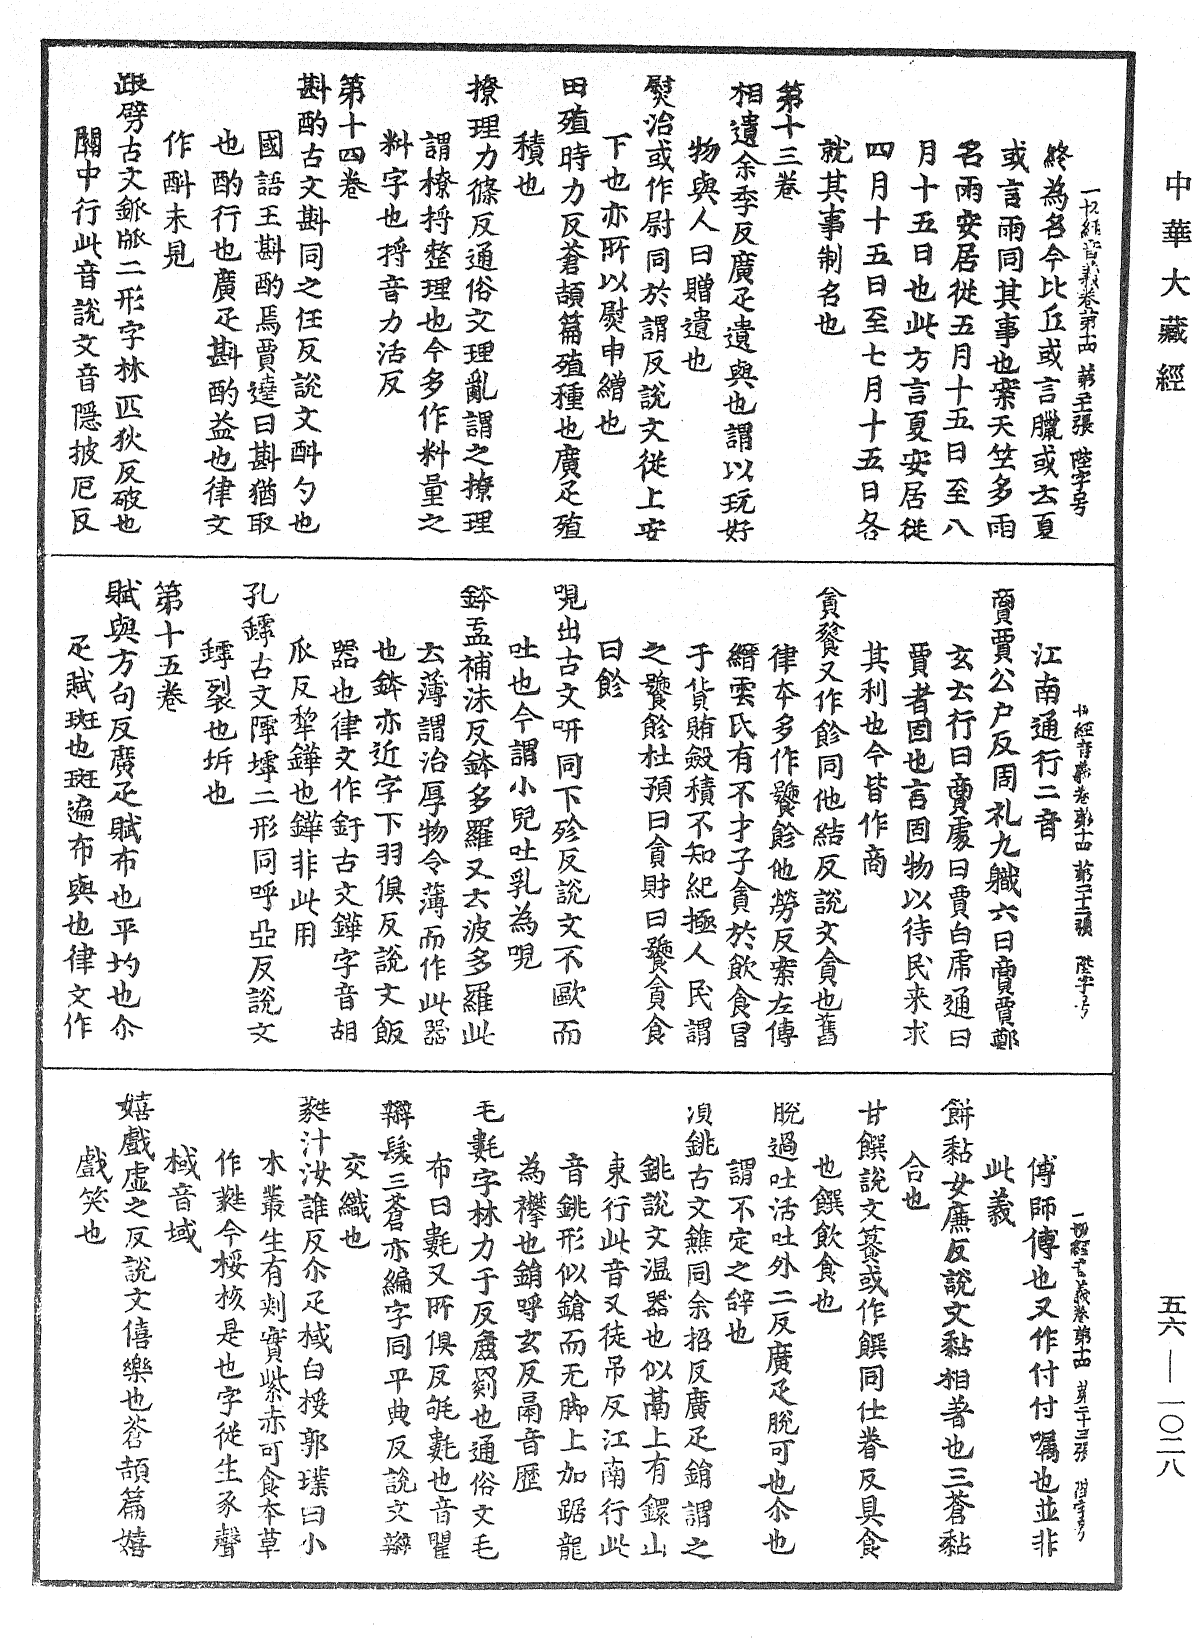 中華大藏經
一切經音義卷第十四 第二十一張 陸字号
終為名今比丘或言臘或云夏
或言雨同其事也案天竺多雨
名雨安居從五月十五日至八
月十五日也此方言夏安居從
四月十五日至七月十五日各
就其事制名也
第十三卷
相遺余季反廣疋遺與也謂以玩好
物與人曰贈遺也
熨治或作尉同於謂反說文從上安
下也亦所以熨申繒也
田殖時力反蒼頡篇殖種也廣疋殖
積也
撩理力條反通俗文理亂謂之撩理
謂撩捋整理也今多作料量之
料字也捋音力活反
第十四卷
斟酌古文㪺同之任反說文酙勺也
國語王斟酌焉賈逵曰斟猶取
也酌行也廣疋斟酌益也律文
作酙未見
䟡劈古文𨦵𠜱二形字林匹狄反破也
關中行此音說文音隱披厄反
江南通行二音
一切經音義卷第十四 第二十二張 陸字号
賫賈公户反周礼九軄六曰賫賈鄭
玄云行曰賫處曰賈白虎通曰
賈者固也言固物以待民来求
其利也今皆作商
貪餮又作飻同他結反說文貪也舊
律夲多作饕飻他勞反案左傳
縉雲氏有不才子貪於飲食冒
于貨賄斂積不知紀極人民謂
之饕飻杜預曰貪財曰饕貪食
曰飻
哯出古文𠯟同下殄反說文不歐而
吐也今謂小兒吐乳為哯
鉢盂補沫反鉢多羅又云波多羅此
云薄謂治厚物令薄而作此器
也鉢亦近字下羽俱反說文飯
器也律文作釪古文鏵字音胡
瓜反犂鏵也鏵非此用
孔罅古文㙤𡐦二形同呼亞反說文
罅裂也坼也
第十五卷
賦與方句反廣疋賦布也平均也尒
疋賦班也班遍布與也律文作
一切經音義卷第十四 第二十三張 陸字号
傅師傅也又作付付囑也並非
此義
餅黏女廉反說文黏相著也三蒼黏
合也
甘饌說文籑或作饌同仕眷反具食
也饌飲食也
脫過吐活吐外二反廣疋脫可也尒也
謂不定之辝也
湏銚古文鐎同余招反廣疋銷謂之
銚說文温器也似鬲上有鐶山
東行此音又徒吊反江南行此
音銚形似鎗而无脚上加踞龍
為襻也銷呼玄反鬲音歷
毛氀字林力于反氍罽也通俗文毛
布曰氀又所俱反毹氀也音瞿
辮髮三蒼亦編字同平典反說文辮
交織也
蕤汁汝誰反尒疋棫白桵郭璞曰小
木叢生有刾實紫赤可食本草
作蕤今桵核是也字從生豕聲
棫音域
嬉戲虛之反說文僖樂也蒼頡篇嬉
戲笑也
五六—一〇二八